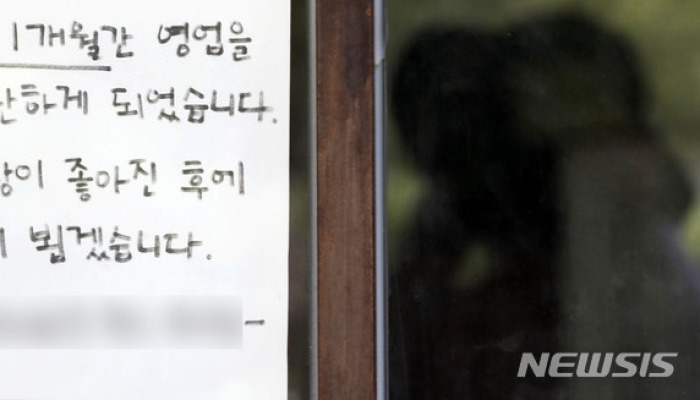 1개월간 영업을
단하게 되었습니다.
이 좋아진 후에
뵙겠습니다.
-
NEWSIS